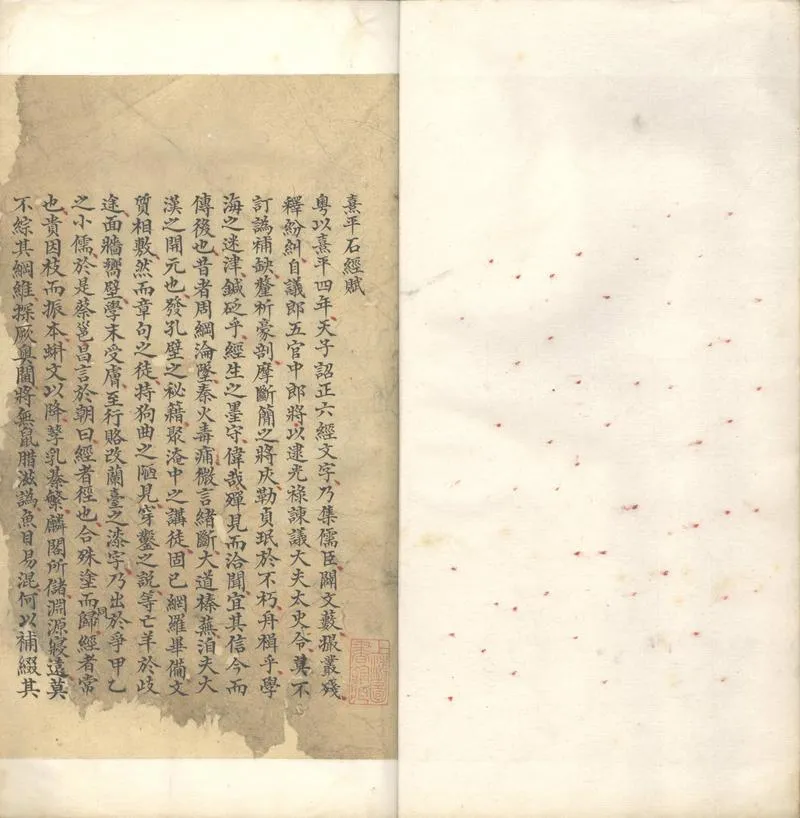 熹平石經賦
粵以熹平四年天子詔正六經文字乃集儒臣關文藪撮叢殘
釋紛糾自議郎五官中郎將以逮光祿諫議大夫太史令莫不
訂譌補缺釐析豪剖摩斷簡之將灰勒貞珉於不朽舟楫乎學
海之迷津鍼砭乎經生之墨守偉哉殫見而洽聞宜其信今而
傳後也昔者周綱淪墜秦火毒痡微言緒斷大道榛蕪洎夫大
漢之開元也發孔壁之秘籍聚淹中之講徒固已網羅畢備文
質相敷然而章句之徒持狗曲之陋見穿鑿之說等亡羊於歧
途面牆嚮壁學末受膚至行賂改蘭臺之漆字乃出於爭甲乙
之小儒於是蔡邕昌言於朝曰經者徑也合殊塗而歸同經者常
也貴因枝而振本蝌文以降孳乳綦繁麟閣所儲淵源寖遠莫
不綜其綱維探厥奧閫將無鼠腊滋譌魚目易混何以補綴其